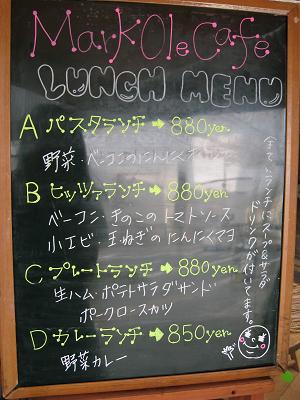 Mark Ole Cafe
LUNCH MENU
A パスタランチ → 880yen.
野菜・ベーコンのにんにく
B ピッツァランチ → 880yen.
ベーコン・きのこのトマトソース
小エビ・玉ねぎのにんにくマヨ
C プレートランチ → 880yen.
生ハム・ポテトサラダサンド
ポークロースカツ
D カレーランチ → 850yen.
野菜カレー
全てのランチにスープ&サラダ
ドリンクが付いてます。